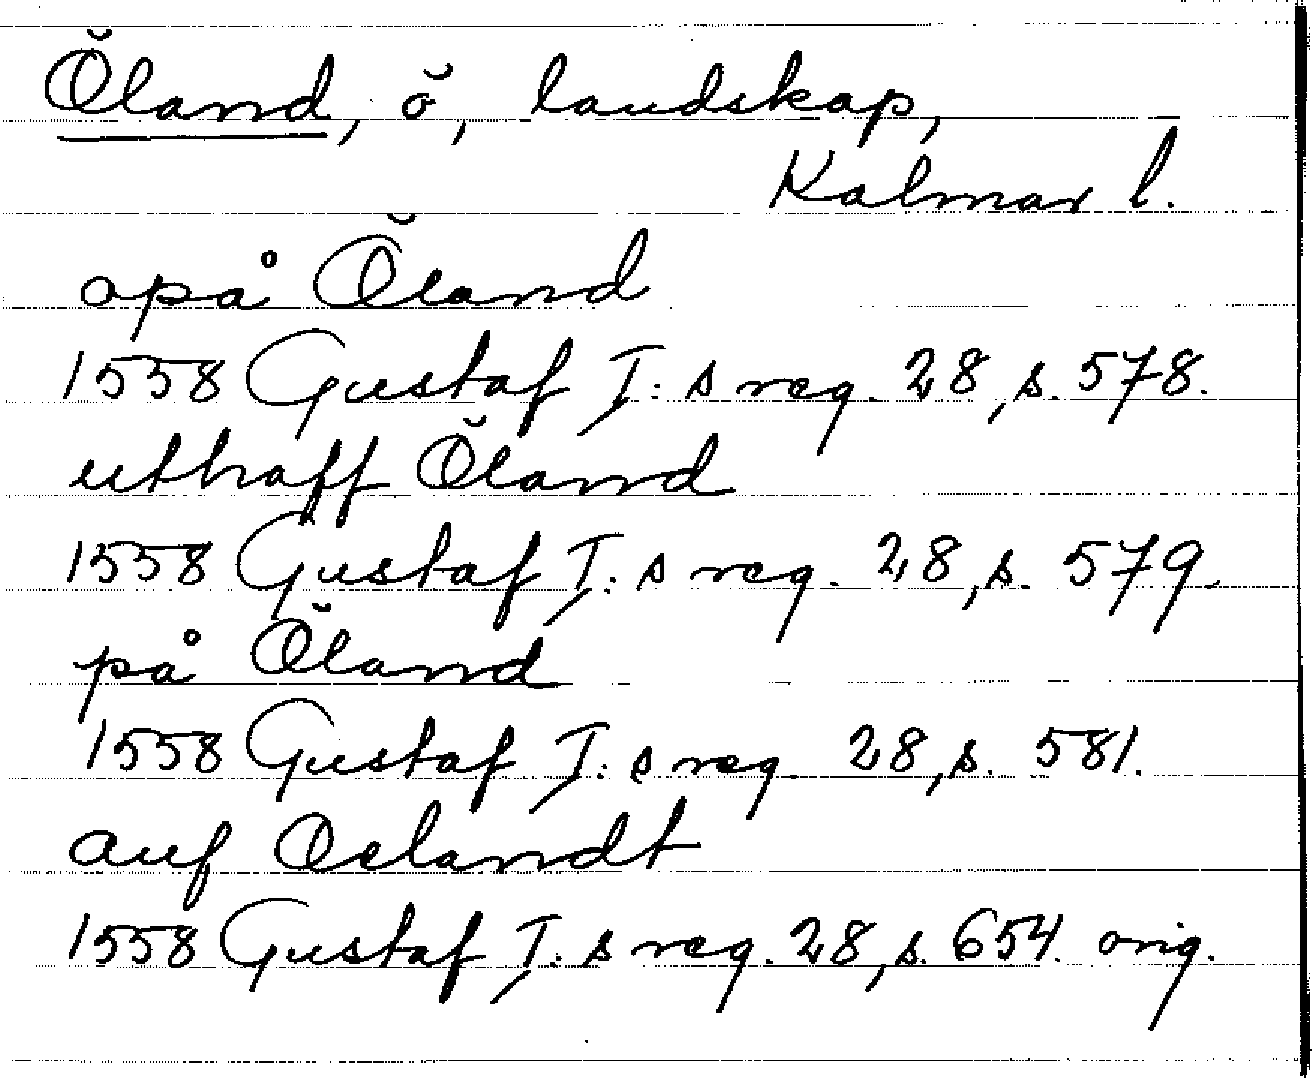 Öland, ö, landskap,
Kalmar l.
opå Öland
1558 Gustaf I:s reg. 28, s. 578.
uthaff Öland
1558 Gustaf I:s reg. 28, s. 579.
på Öland
1558 Gustaf I:s reg. 28, s. 581.
auf Oelandt
1558 Gustaf I:s reg. 28, s. 654. orig.